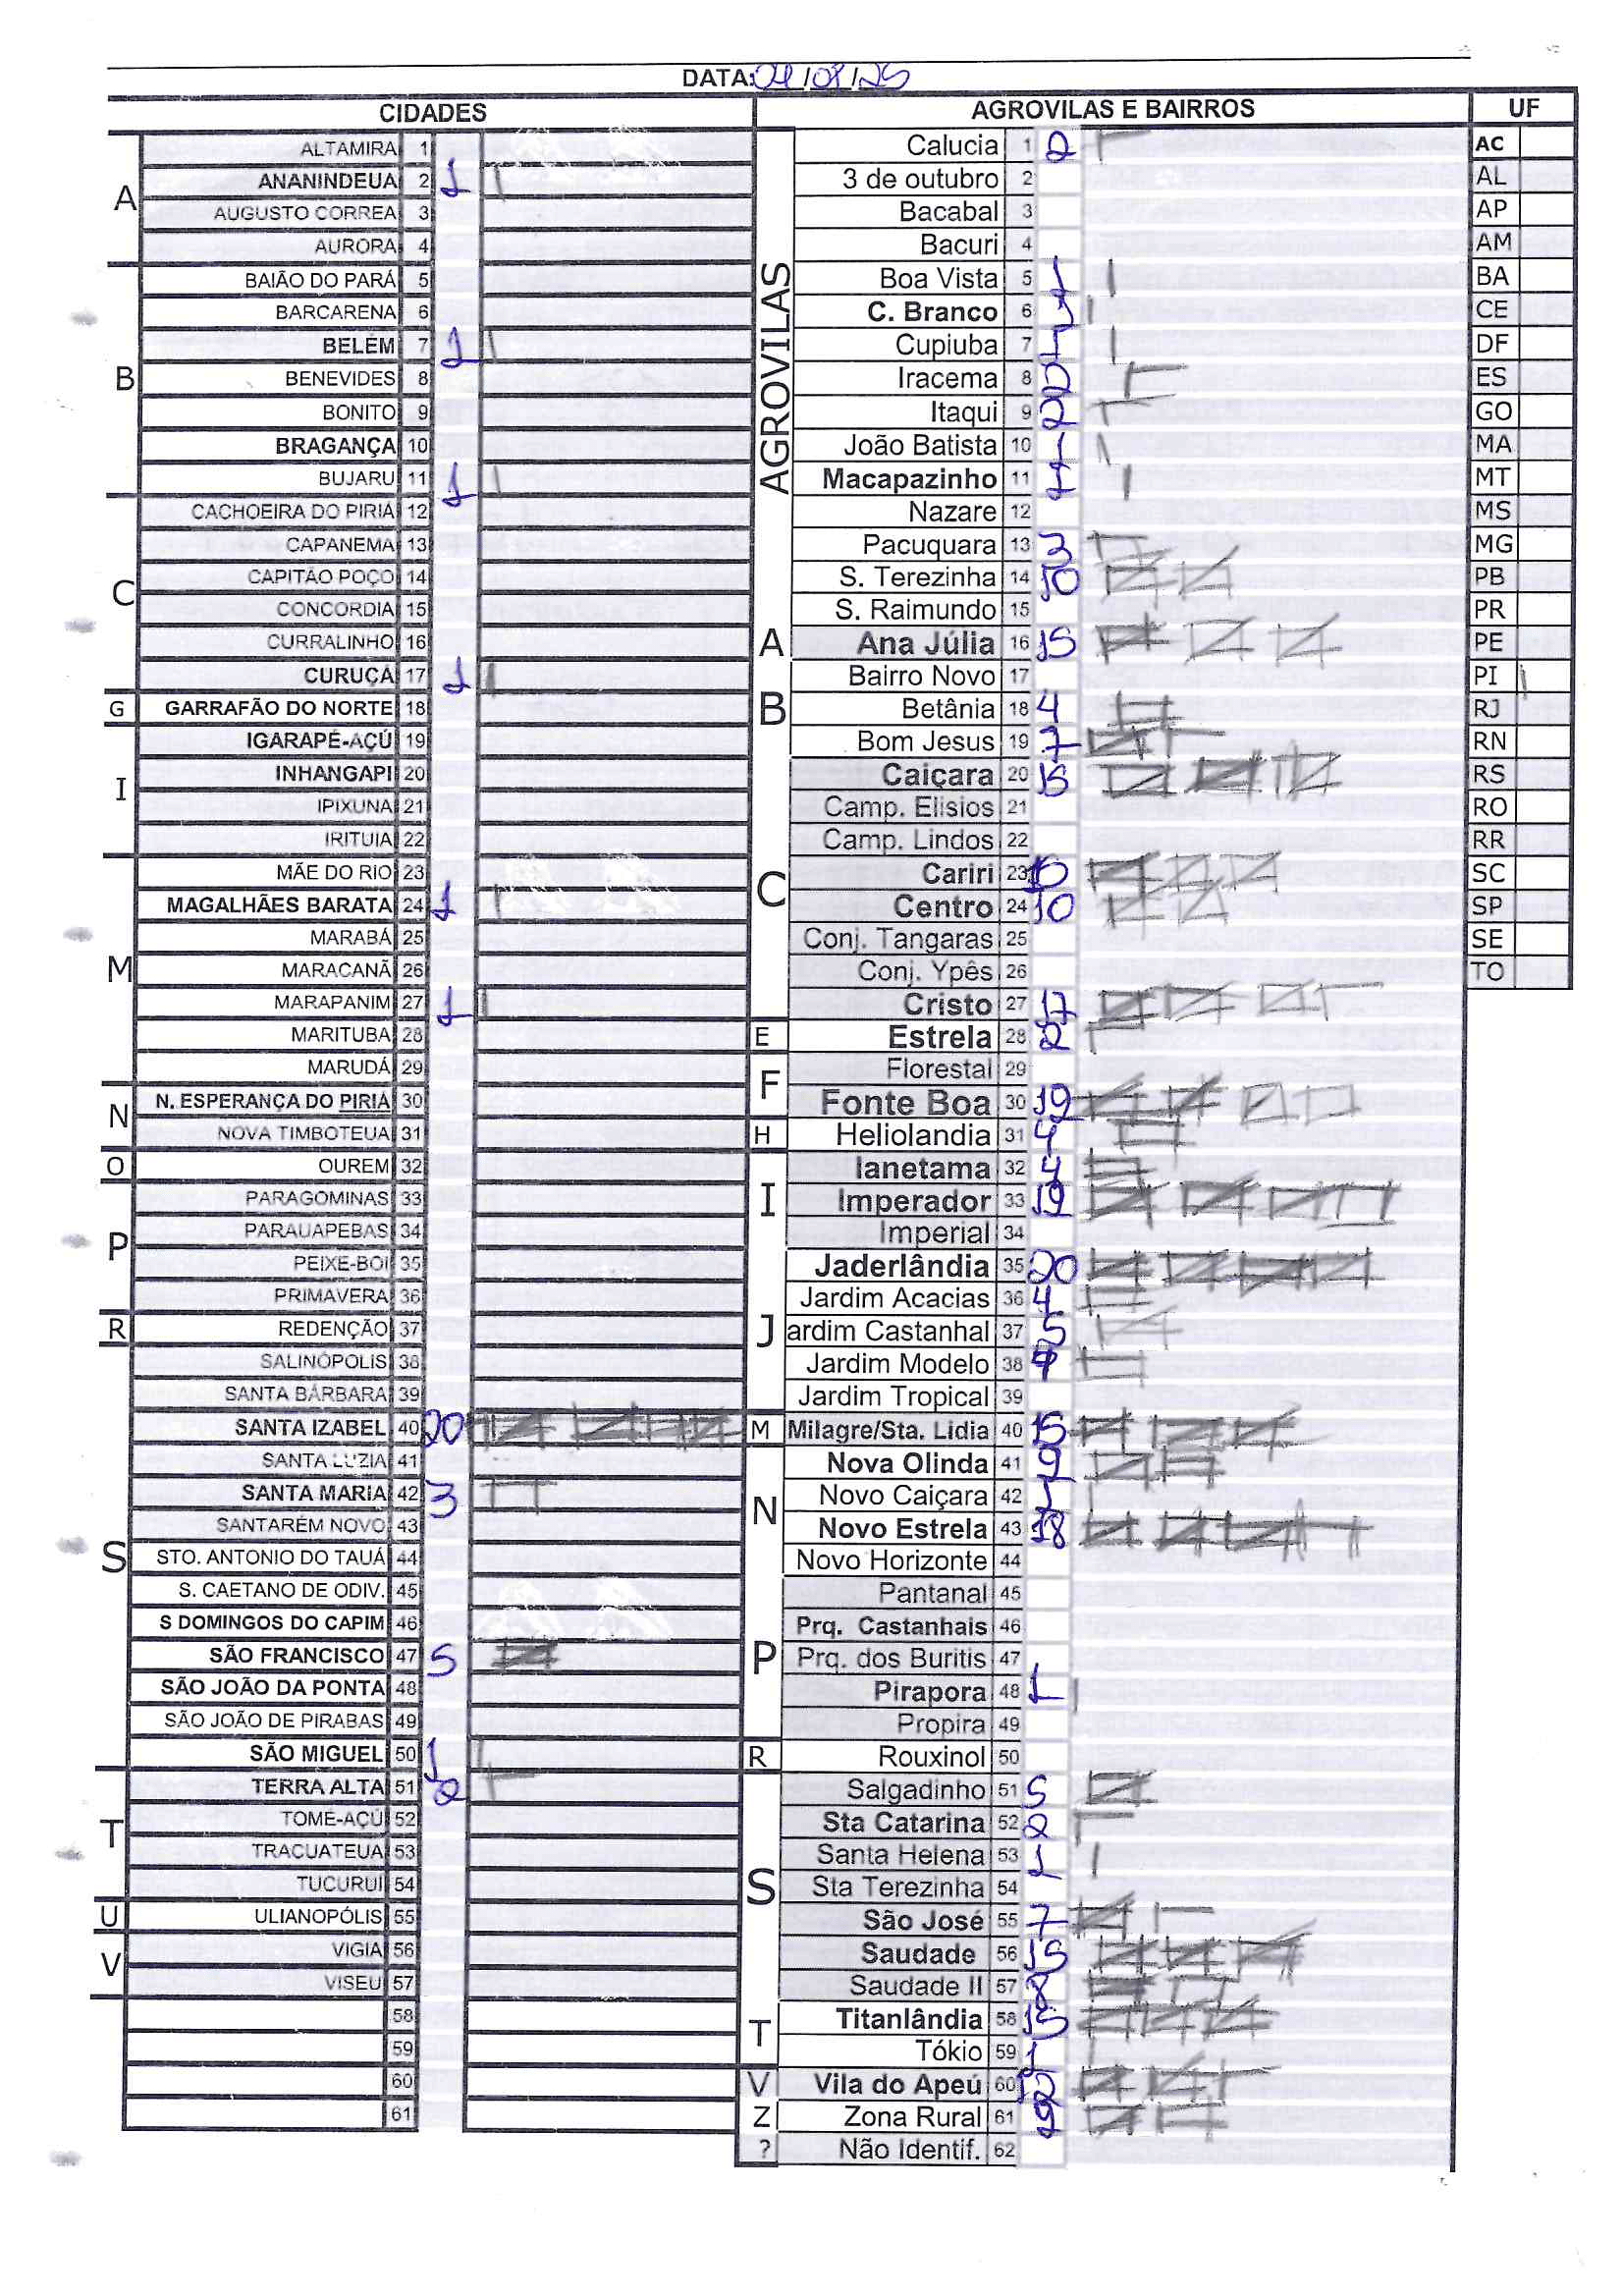 DATA: 04/08/25
CIDADES AGROVILAS E BAIRROS UF
A
ALTAMIRA 1
ANANINDEUA 2 1
AUGUSTO CORREA 3
AURORA 4
B
BAIÃO DO PARÁ 5
BARCARENA 6
BELÉM 7 1
BENEVIDES 8
BONITO 9
BRAGANÇA 10
BUJARU 11 1
C
CACHOEIRA DO PIRIÁ 12
CAPANEMA 13
CAPITÃO POÇO 14
CONCORDIA 15
CURRALINHO 16
CURUÇA 17 1
G
GARRAFÃO DO NORTE 18
I
IGARAPÉ-AÇÚ 19
INHANGAPI 20
IPIXUNA 21
IRITUIA 22
M
MÃE DO RIO 23
MAGALHÃES BARATA 24 1
MARABÁ 25
MARACANÃ 26
MARAPANIM 27 1
MARITUBA 28
MARUDÁ 29
N
N. ESPERANÇA DO PIRIÁ 30
NOVA TIMBOTEUA 31
O
OUREM 32
P
PARAGOMINAS 33
PARAUAPEBAS 34
PEIXE-BOI 35
PRIMAVERA 36
R
REDENÇÃO 37
S
SALINÓPOLIS 38
SANTA BÁRBARA 39
SANTA IZABEL 40 20
SANTA LUZIA 41
SANTA MARIA 42 3
SANTARÉM NOVO 43
STO. ANTONIO DO TAUÁ 44
S. CAETANO DE ODIV. 45
S DOMINGOS DO CAPIM 46
SÃO FRANCISCO 47 5
SÃO JOÃO DA PONTA 48
SÃO JOÃO DE PIRABAS 49
SÃO MIGUEL 50 1
T
TERRA ALTA 51 2
TOMÉ-AÇÚ 52
TRACUATEUA 53
TUCURUI 54
U
ULIANOPÓLIS 55
V
VIGIA 56
VISEU 57
58
59
60
61
AGROVILAS
Calucia 1 2
3 de outubro 2
Bacabal 3
Bacuri 4
Boa Vista 5 1
C. Branco 6 1
Cupiuba 7 1
Iracema 8 2
Itaqui 9 2
João Batista 10 1
Macapazinho 11 1
Nazare 12
Pacuquara 13 3
S. Terezinha 14 10
S. Raimundo 15
A
Ana Júlia 16 15
B
Bairro Novo 17
Betânia 18 4
Bom Jesus 19 7
C
Caiçara 20 15
Camp. Elisios 21
Camp. Lindos 22
Cariri 23
Centro 24 10
Conj. Tangaras 25
Conj. Ypês 26
Cristo 27 17
E
Estrela 28 2
F
Florestal 29
Fonte Boa 30 19
H
Heliolandia 31 4
I
Ianetama 32 4
Imperador 33 19
Imperial 34
J
Jaderlândia 35 20
Jardim Acacias 36 4
ardim Castanhal 37 5
Jardim Modelo 38
Jardim Tropical 39
M
Milagre/Sta. Lidia 40 15
N
Nova Olinda 41 9
Novo Caiçara 42 1
Novo Estrela 43 18
Novo Horizonte 44
P
Pantanal 45
Prq. Castanhais 46
Prq. dos Buritis 47
Pirapora 48 1
Propira 49
R
Rouxinol 50
S
Salgadinho 51 5
Sta Catarina 52 2
Santa Helena 53 1
Sta Terezinha 54
São José 55 7
Saudade 56 15
Saudade II 57 8
T
Titanlândia 58 15
Tókio 59 1
V
Vila do Apeú 60 12
Z
Zona Rural 61 9
?
Não Identif. 62
AC
AL
AP
AM
BA
CE
DF
ES
GO
MA
MT
MS
MG
PB
PR
PE
PI
RJ
RN
RS
RO
RR
SC
SP
SE
TO